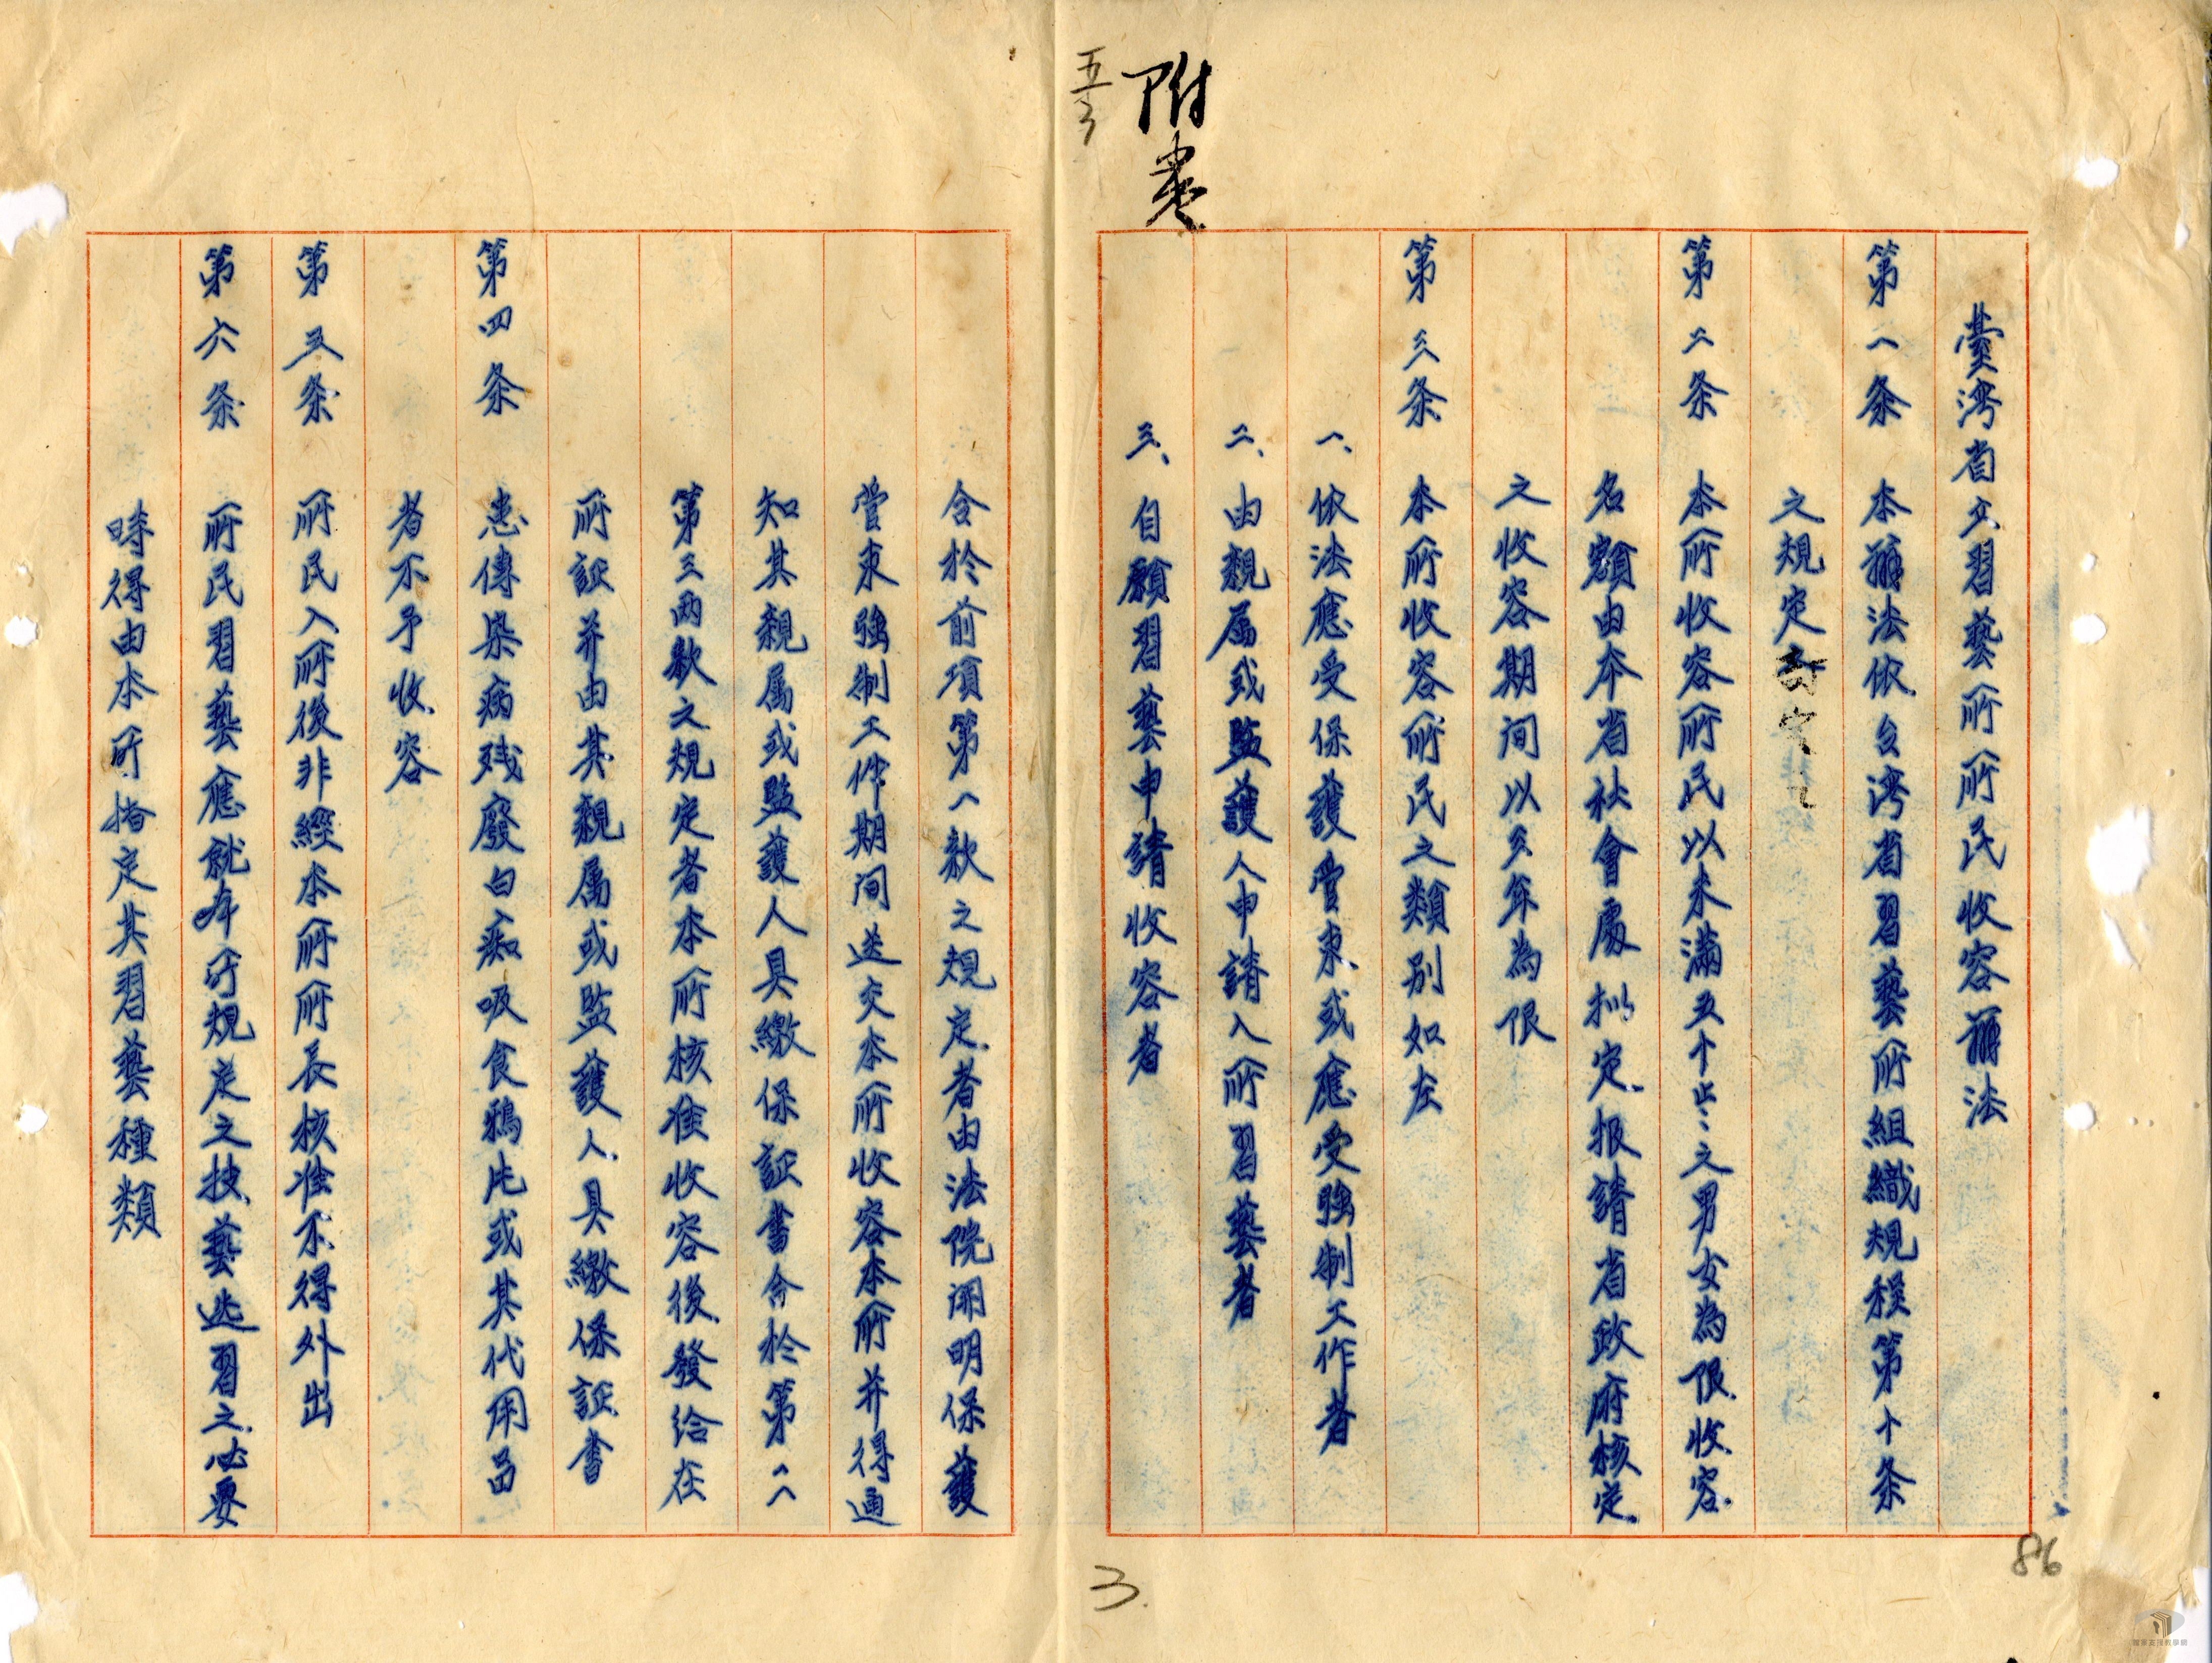 附卷
五.3
臺湾省立習藝所所民收容辦法
第一条 本辦法依台湾省習藝所組織規程第十条
之規定訂定之
第二条 本所收容所民以未滿五十歲之男女為限收容
名額由本省社會處拟定报請省政府核定
之收容期间以叁年為限
第三条 本所收容所民之類别如左
一、依法應受保護管束或應受強制工作者
二、由親属或監護人申請入所習藝者
三、自願習藝申請收容者
合於前項第一款之規定者由法院開明保護
管束強制工作期间送交本所收容本所并得通
知其親属或監護人具繳保証書合於第二
第三兩款之規定者本所核准收容後發给在
所証并由其親属或監護人具繳保証書
第四条 患傳染病残廢白痴吸食鴉片或其代用品
者不予收容
第五条 所民入所後非經本所所長核准不得外出
第六条 所民習藝應就本所規定之技藝选習之必要
時得由本所指定其習藝種類
3.
86
國家高接教學網